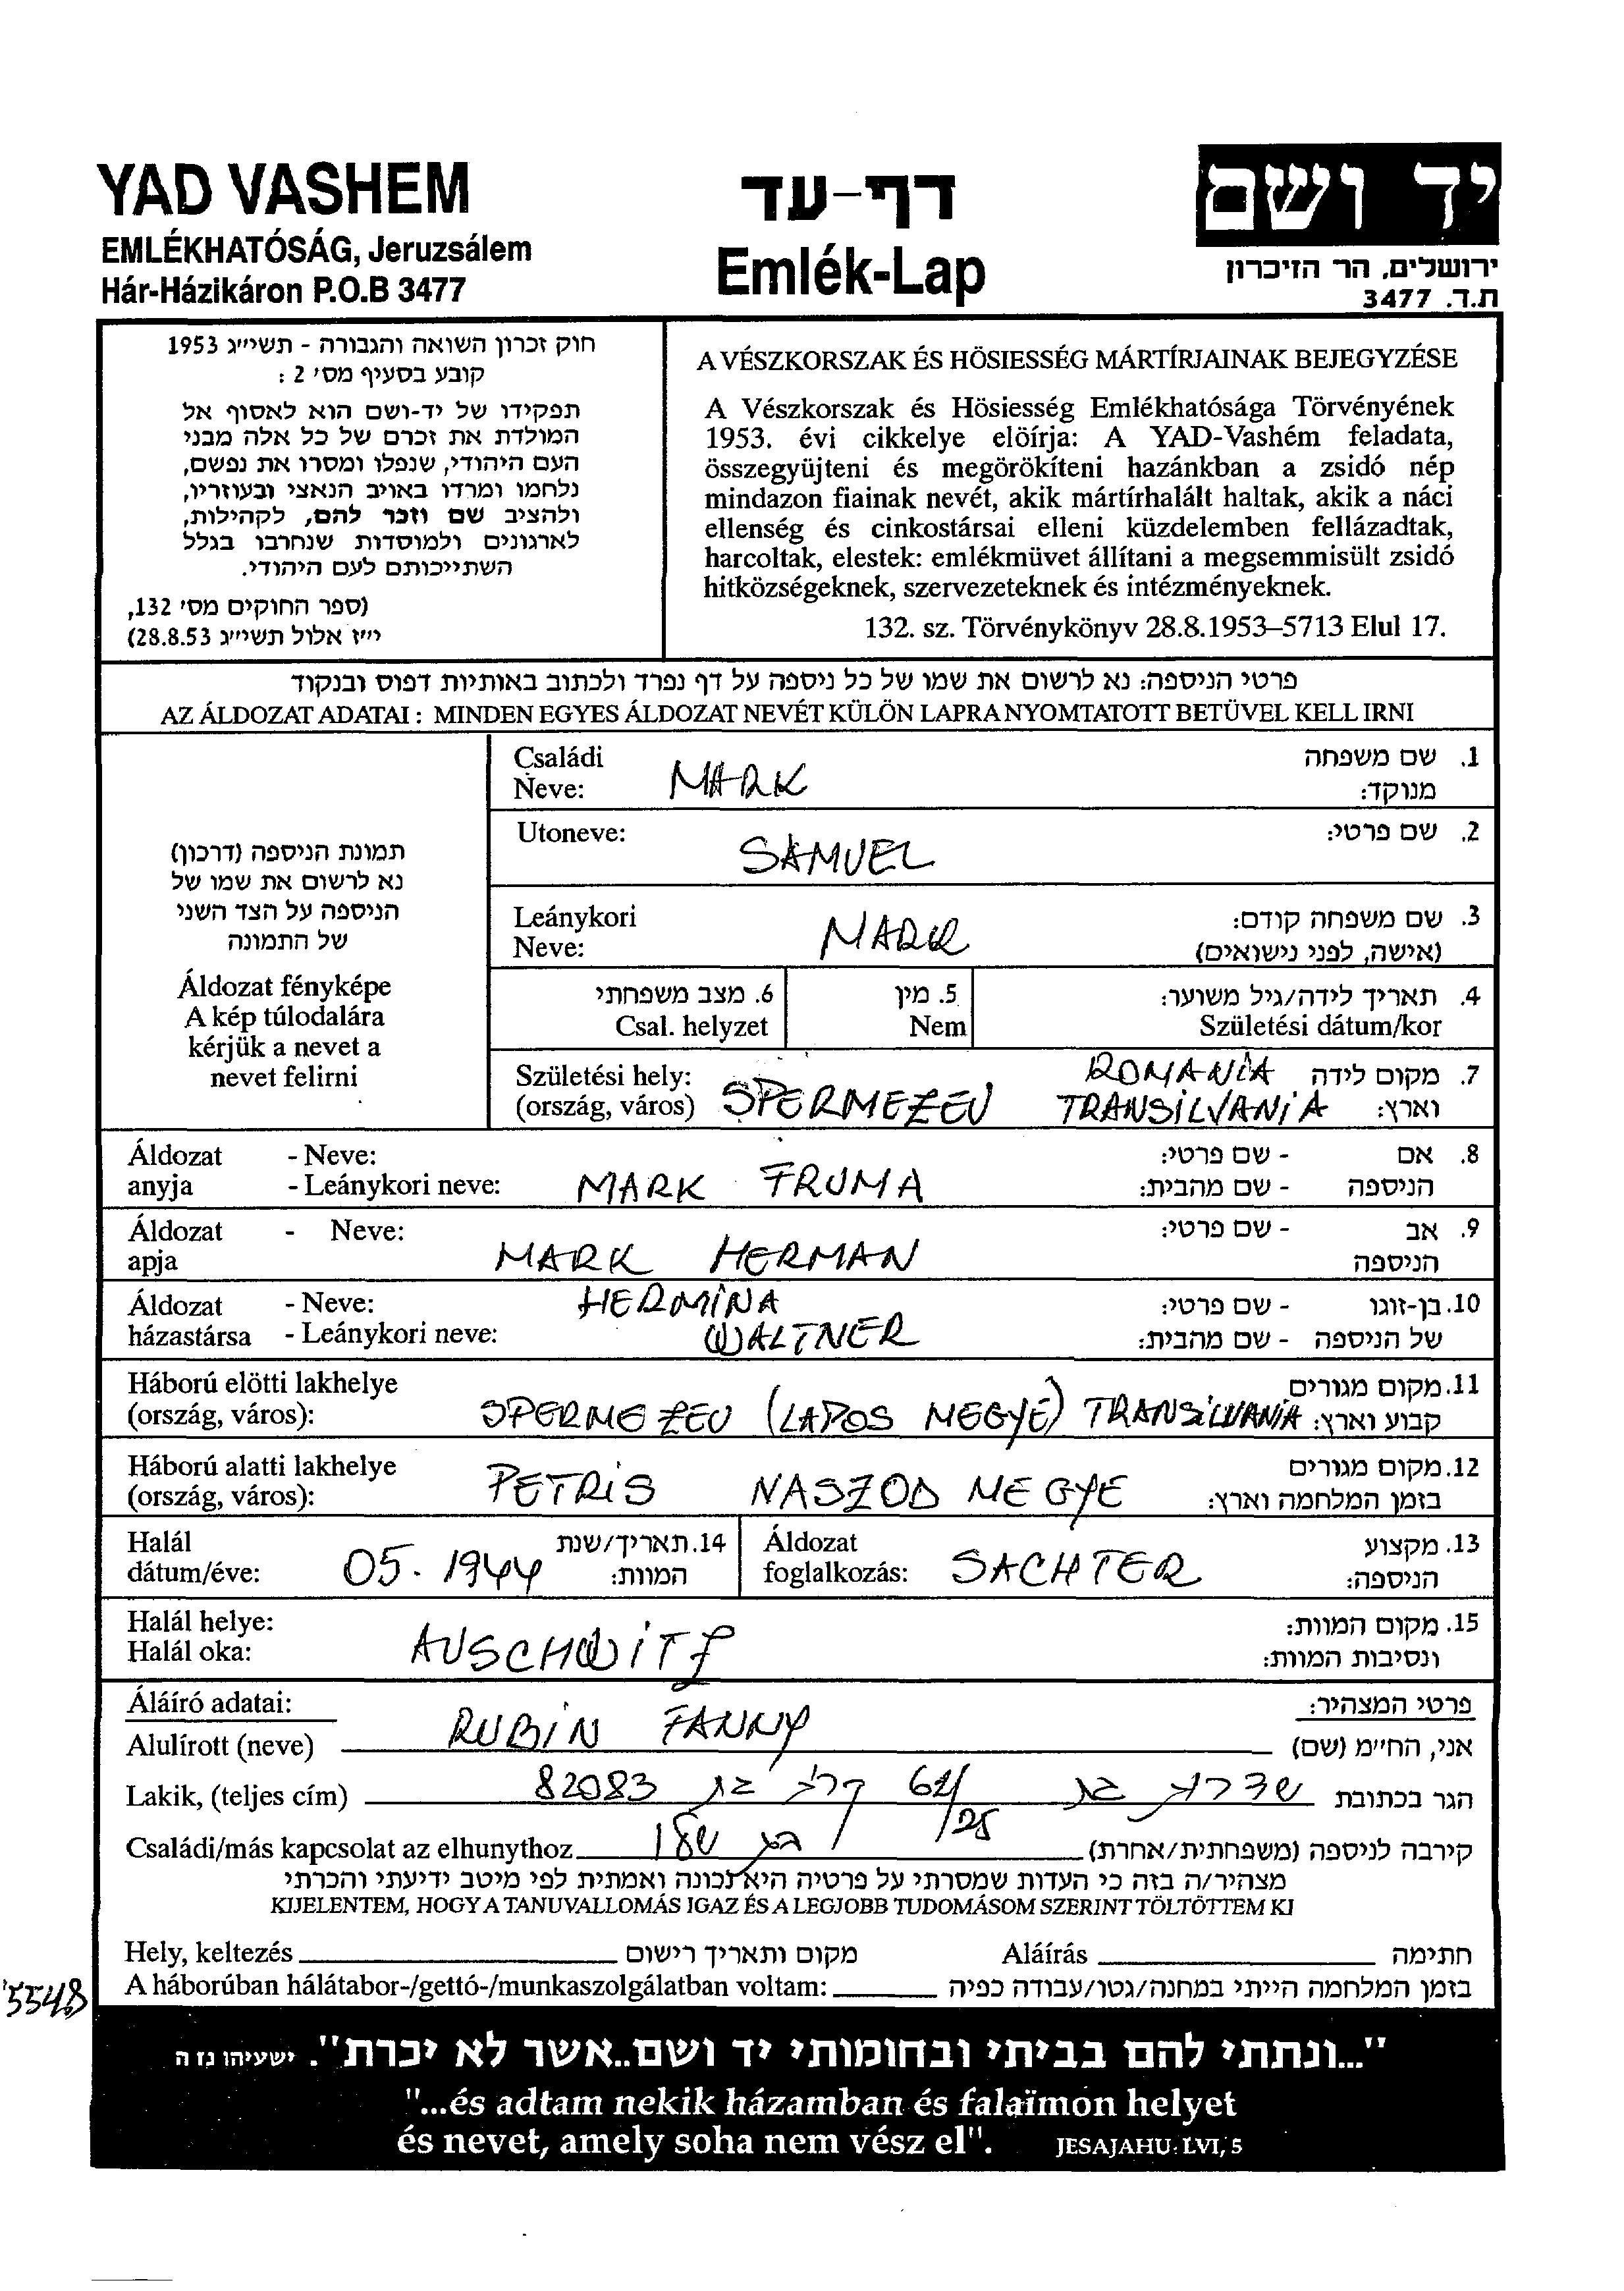 YAD VASHEM
EMLÉKHATÓSÁG, Jeruzsálem
Hár-Házikáron P.O.B 3477
דף-עד
Emlék-Lap
יד ושם
ירושלים, הר הזיכרון
ת.ד. 3477
חוק זכרון השואה והגבורה - תשי״ג 1953
קובע בסעיף מס׳ 2 :
תפקידו של יד-ושם הוא לאסוף אל
המולדת את זכרם של כל אלה מבני
העם היהודי, שנפלו ומסרו את נפשם,
נלחמו ומרדו באויב הנאצי ובעוזריו,
ולהציב שם וזכר להם, לקהילות,
לארגונים ולמוסדות שנחרבו בגלל
השתייכותם לעם היהודי.
(ספר החוקים מס׳ 132,
י״ז אלול תשי״ג 28.8.53)
A VÉSZKORSZAK ÉS HÖSIESSÉG MÁRTÍRJAINAK BEJEGYZÉSE
A Vészkorszak és Hösiesség Emlékhatósága Törvényének
1953. évi cikkelye elöírja: A YAD-Vashém feladata,
összegyüjteni és megörökíteni hazánkban a zsidó nép
mindazon fiainak nevét, akik mártírhalált haltak, akik a náci
ellenség és cinkostársai elleni küzdelemben fellázadtak,
harcoltak, elestek: emlékmüvet állítani a megsemmisült zsidó
hitközségeknek, szervezeteknek és intézményeknek.
132. sz. Törvénykönyv 28.8.1953–5713 Elul 17.
פרטי הניספה: נא לרשום את שמו של כל ניספה על דף נפרד ולכתוב באותיות דפוס ובנקוד
AZ ÁLDOZAT ADATAI : MINDEN EGYES ÁLDOZAT NEVÉT KÜLÖN LAPRA NYOMTATOTT BETÜVEL KELL IRNI
תמונת הניספה (דרכון)
נא לרשום את שמו של
הניספה על הצד השני
של התמונה
Áldozat fényképe
A kép túlodalára
kérjük a nevet a
nevet felirni
Családi
Neve: MARK
1. שם משפחה
מנוקד:
Utoneve: SAMUEL 2. שם פרטי:
Leánykori
Neve: MARK
3. שם משפחה קודם:
(אישה, לפני נישואים)
6. מצב משפחתי
Csal. helyzet
5. מין
Nem
4. תאריך לידה/גיל משוער:
Születési dátum/kor
Születési hely: ROMANiA 7. מקום לידה
(ország, város) SPERMEZEU TRANSiLVANiA וארץ:
Áldozat - Neve: - שם פרטי: 8. אם
anyja - Leánykori neve: MARK FRUMA - שם מהבית: הניספה
Áldozat - Neve: - שם פרטי: 9. אב
apja MARK HERMAN הניספה
Áldozat - Neve: HERMiNA - שם פרטי: 10. בן-זוגו
házastársa - Leánykori neve: WALTNER - שם מהבית: של הניספה
Háború elötti lakhelye 11. מקום מגורים
(ország, város): SPERMEZEU (LAPOS MEGYE) TRANSiLVANiA קבוע וארץ:
Háború alatti lakhelye 12. מקום מגורים
(ország, város): PETRiS NASZOD MEGYE בזמן המלחמה וארץ:
Halál 14. תאריך/שנת
dátum/éve: 05. 1944 המוות:
Áldozat 13. מקצוע
foglalkozás: SACHTER הניספה:
Halál helye: 15. מקום המוות:
Halál oka: AUSCHWiTZ ונסיבות המוות:
Áláíró adatai: פרטי המצהיר:
Alulírott (neve) RUBiN FANNY אני, הח״מ (שם)
Lakik, (teljes cím) 82083 קרית גת 61/25 הגר בכתובת
Családi/más kapcsolat az elhunythoz קירבה לניספה (משפחתית/אחרת)
מצהיר/ה בזה כי העדות שמסרתי על פרטיה היא נכונה ואמתית לפי מיטב ידיעתי והכרתי
KIJELENTEM, HOGY A TANUVALLOMÁS IGAZ ÉS A LEGJOBB TUDOMÁSOM SZERINT TÖLTÖTTEM KI
Hely, keltezés מקום ותאריך רישום Aláírás חתימה
A háborúban hálátabor-/gettó-/munkaszolgálatban voltam: בזמן המלחמה הייתי במחנה/גטו/עבודה כפיה
5548
"...ונתתי להם בביתי ובחומותי יד ושם..אשר לא יכרת". ישעיהו נו ה
"...és adtam nekik házamban és falaïmon helyet
és nevet, amely soha nem vész el". JESAJAHU: LVI, 5